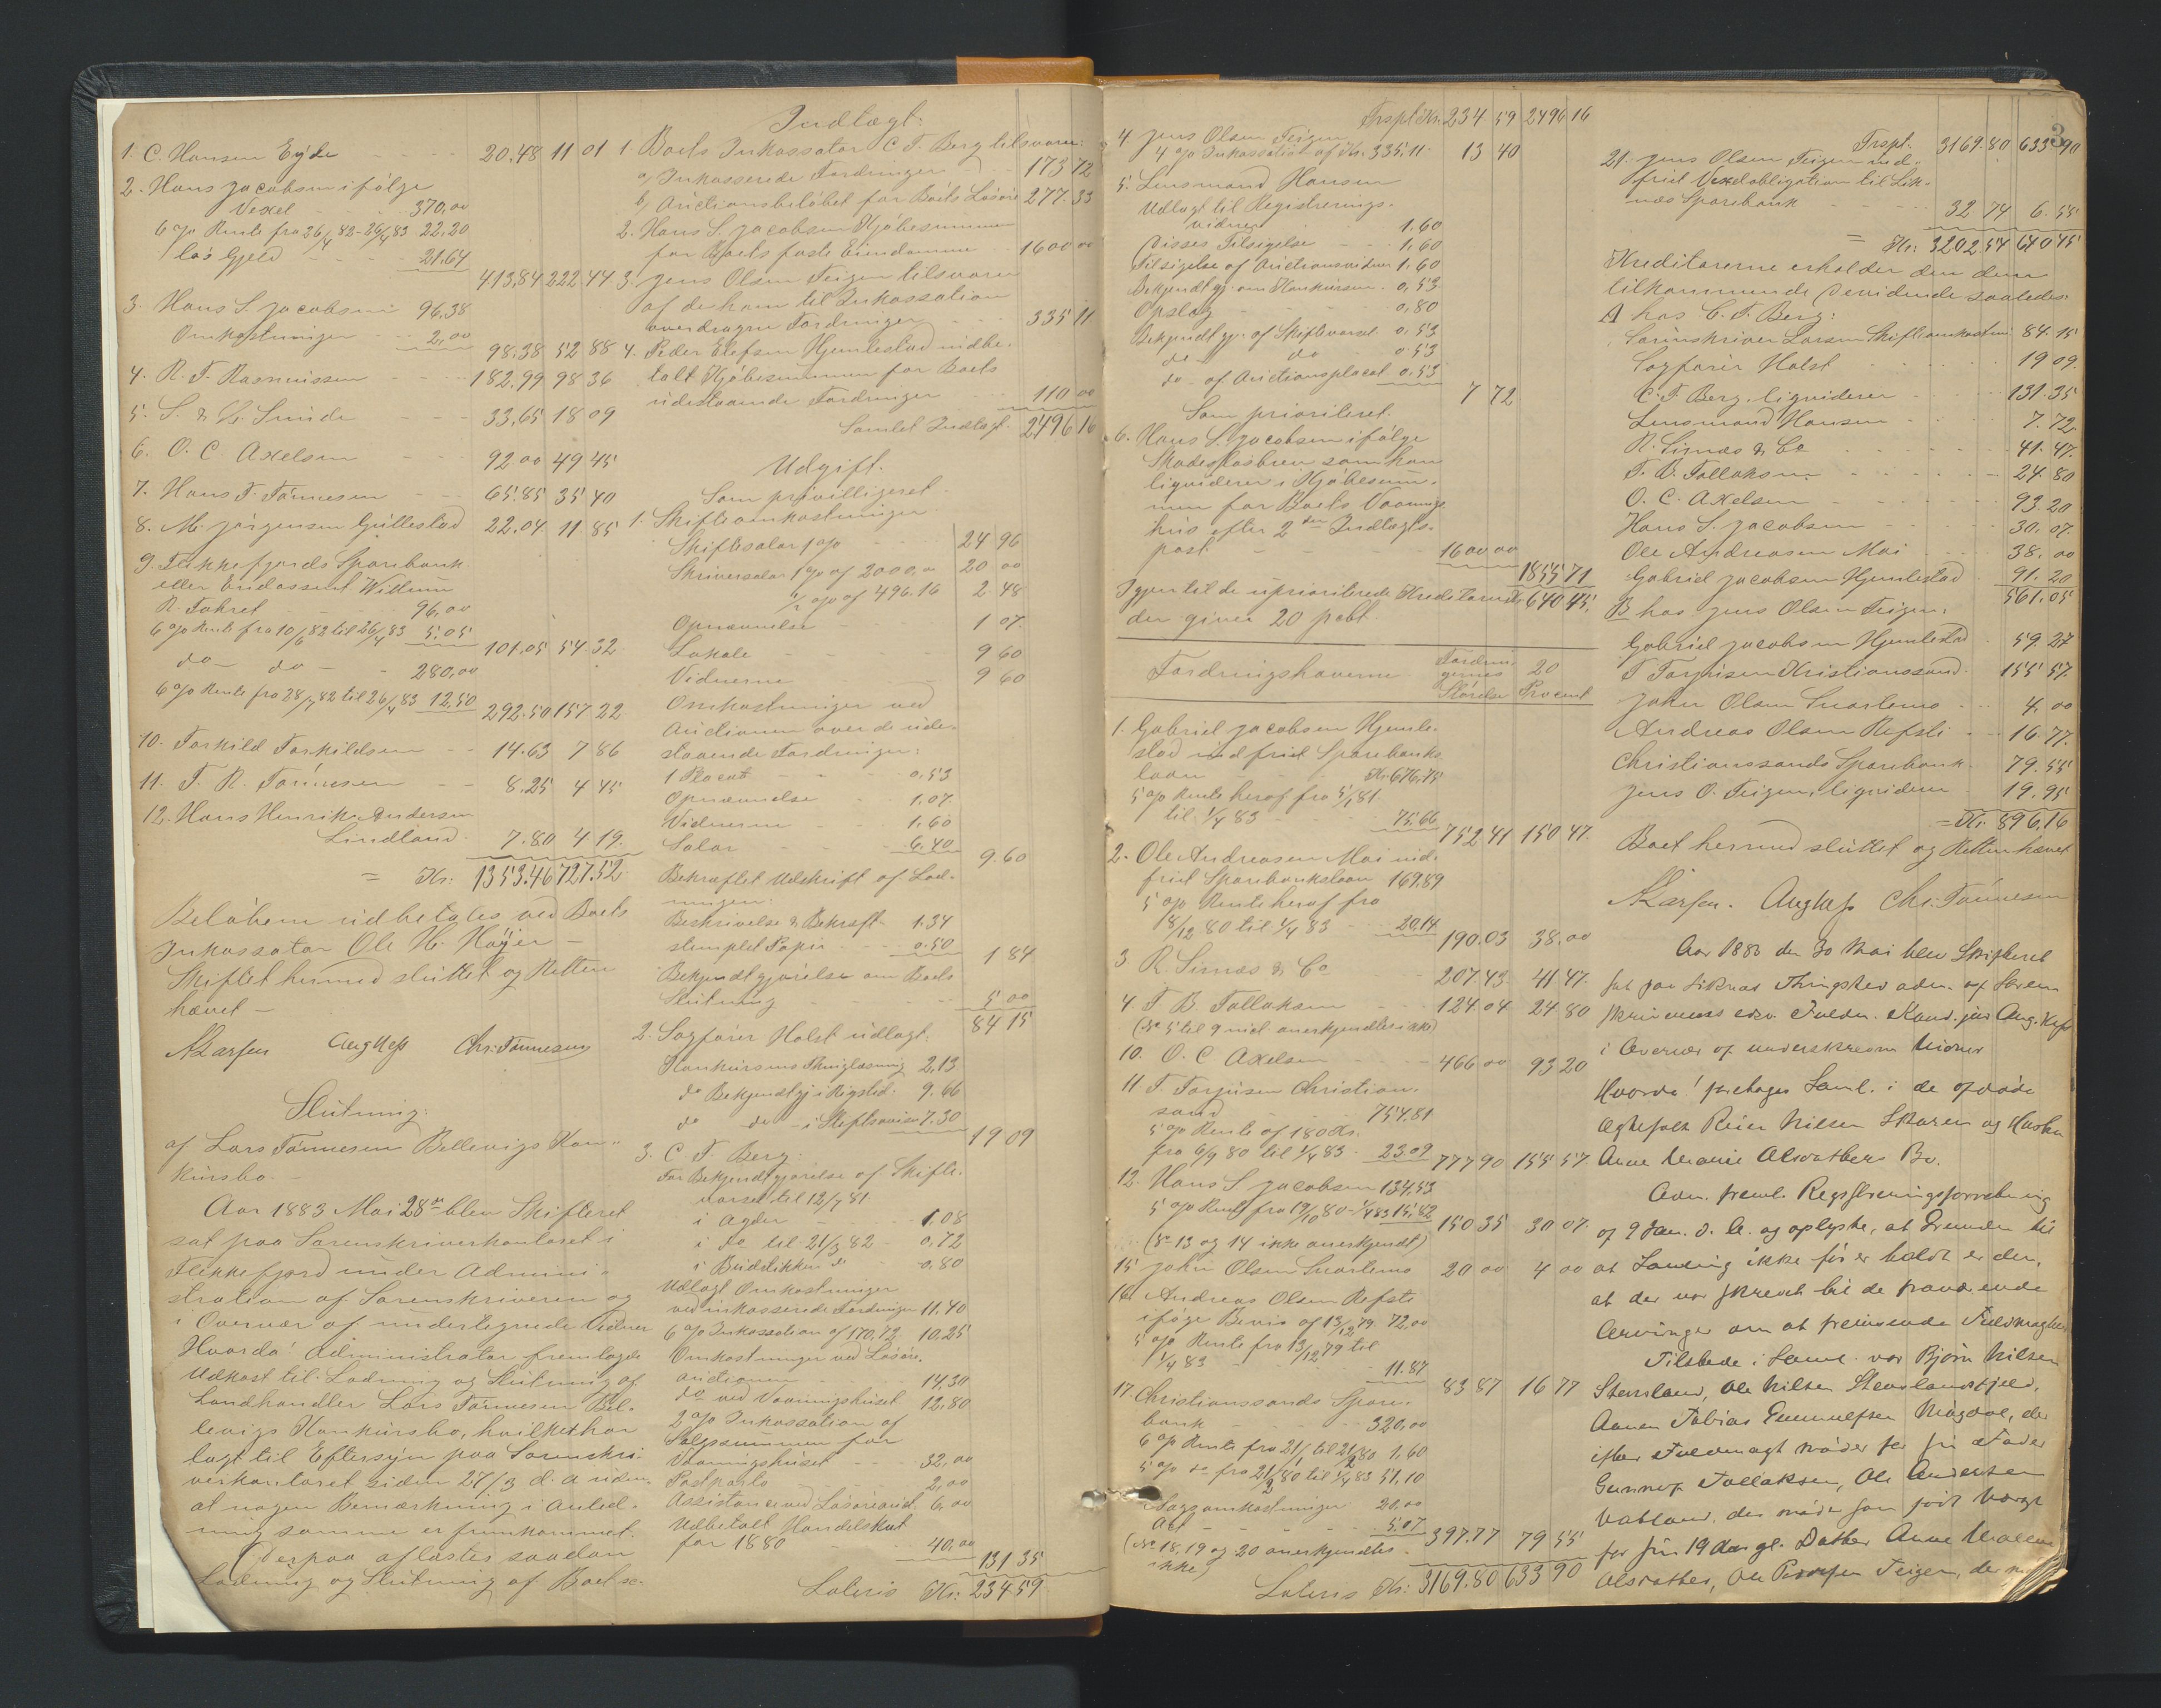 1. C. Hansen Eyde - - 20.48 11 01
2. Hans Jacobsen ifølge
Vexel - - 370,00
6 % Rente fra 26/4 82 - 26/4 83 22.20
løs Gjeld - - 21.64
413,84 222.44
3. Hans S. Jacobsen 96,38
Omkostninger - 2,00
98.38 52 88
4. R. F. Rasmussen - - 182.99 98 36
5. S. & L. Sunde - - 33,65 18 09
6. O. C. Axelsen - - 92 00 49 45
7. Hans F. Tønnesen - - 65.85 35 40
8. M. Jørgensen Gullestad 22.04 11.85
9. Flekkefjords Sparebank
eller Endossent Widum
R. Fahret - - 96,00
6 % Rente fra 10/6 82 til 26/4 83 5.05
101.05 54 32
do - do - - 280,00
6 % Rente fra 28/7 82 til 26/4 83 12,50
292.50 157 22
10. Torkild Torkildsen - - 14.63 7 86
11. F. R. Tønnesen - - 8.25 4 45
12. Hans Henrik Andersen
Lindland. 7.80 4 19.
= Kr: 1353.46 727.52
Beløbene udbetales ved Boets
Inkassator Ole H. Høyer -
Skiftet hermed sluttet og Retten
hævet -
NLarsen Aug Kaß Chr. Tønnesen
Slutning:
af Lars Tønnesen Bellevigs Kon-
kursbo. -
Aar 1883 Mai 28de blev Skifteret
sat paa Sorenskriverkontoret i
Flekkefjord under Admini-
stration af Sorenskriveren og
i Overvær af undertegnede Vidner
Hvorda! Administrator fremlagde
Udkast til Lodning og Slutning af
Landhandler Lars Tønnesen Bel-
levigs Konkursbo, hvilket har
lagt til Eftersyn paa Sorenskri-
verkontoret siden 27/3 d. A uden
at nogen Bemærkning i Anled-
ning samme er fremkommet.
Derpaa aflæstes saadan
Lodning og Slutning af Boet se.
Indtægt:
1 Boets Inkassator C. F. Berg tilsvarer:
a) Inkasserede Fordringer - 173 72
b) Auctionsbeløbet for Boets Løsøre 277. 33
2. Hans S. Jacobsen Kjøbesummen
for Boets faste Eiendomme - 1600 00
3. Jens Olsen Teigen tilsvarer
af de ham til Inkassation
overdragne Fordringer - - 335 11
4. Peder Elefsen Hjemlestad udbe-
talt Kjøbesummen for Boets
udestaaende Fordringer - - 110 00
Samlet Indtægt. 2496 16
Udgift:
Som privilligeret.
1. Skifteomkostninger
Skiftesalar 1 % - - 24 96
Skriversalar 1 % af 2000,00 20 00
1/2 % af 496.16 2 48
Opnævnelse - - 1 07.
Lokale - - 9 60
Vidnerne - - 9 60
Omkostninger ved
Auctionen over de ude-
staaende Fordringer:
1 Placat - - 0,53
Opnævnelse - 1,07.
Vidnerne - 1,60
Salar - - 6.40
9.60
Bekræftet Udskrift af Lod-
ningen:
Beskrivelse & Bekræft. 1.34
stemplet Papir - - 0.50
1 84
Bekjendtgjørelse om Boets
Slutning - - 5 00
84 15
2. Sagfører Holst udlagt:
Konkursens Thinglæsning 2,13
do Bekjendtgj i Rigstid. 9.66
do do - i Stiftsavisen 7.30
19 09
3. C. F. Berg:
For Bekjendtgjørelse af Skifte-
varsel til 12/7 81
i Agder - - 1,08
i do til 21/3 82 - 0,72
i Budstikken do - 0,80
Udlagt Omkostninger
ved inkasserede Fordringer 11.40
6 % Inkassation af 170,72 10.25
Omkostninger ved Løsøre-
auctionen - - 14,30
do ved Vaaningshuset 12,80
2 % Inkassation af
Salgssummen for
Vaaningshuset - - 32,00
Postporto - - 2,00
Assistance ved Løsøreauct. 6,00
Udbetalt Handelskat
for 1880 - 40,00
131 35
Lateris Kr: 234 59
Trspt Kr. 234 59 2496 16
4 Jens Olsen Teigen
4 % Inkassation af Kr. 335.11 - 13 40
5. Lensmand Hansen
Udlagt til Registrerings-
vidner - - 1.60
Disses Tilsigelse - - 1,60
Tilsigelse af Auctionsvidner 1,60
Bekjendtgj. om Konkursen - 0,53
Opslag - - 0,80
Bekjendtgj. af Skiftevarsel 0,53
do - do - 0.53
do - af Auctionsplacat 0,53
7 72
Som prioriteret.
6. Hans S. Jacobsen ifølge
Skadesløsbrev som han
liquiderer i Kjøbesum-
men for Boets Vaanings-
hus efter 2den Indtægts-
post - - 1600 00
1855 71
Igjen til de uprioriterede Kreditorer Kr 640 45.
der giver 20 pCt.
Fordringshaverne Fordrin-
gernes 20
Størrelse Procent
1. Gabriel Jacobsen Hjemle-
stad indfriet Sparebanks
laan - - Kr. 676,75
5 % Rente heraf fra 5/1 81
til 1/4 83 - - 75.66
752 41 150 47.
2. Ole Andreasen Moi ind-
friet Sparebankslaan 169.89
5 % Rente heraf fra
18/12 80 til 1/4 83 - - 20,14
190.03 38.00
3 R. Sirnæs & Co - 207.43 41 47.
4 F. B. Tollaksen - - 124.04 24 80
(No 5 til 9 incl. anerkjendtes ikke)
10. O. C Axelsen - - 466 00 93 20
11 F. Torjusen Christian-
sand - - 754.81
5 % Rente af 180 Kr.
fra 6/9 80 til 1/4 83 - 23.09
777 90 155 57
12. Hans S Jacobsen 134,53
5 % Rente fra 19/10 80 - 1/4 83 15,82
150 35 30 07.
(No 13 og 14 ikke anerkjendt)
15 John Olsen Snartemo 20 00 4 00
16. Andreas Olsen Refsti
ifølge Bevis af 13/12 79 72,00
5 % Rente fra 13/12 79 til
1/4 83 - - 11.87
83 87 16 77
17. Christianssands Spare-
bank - - 320,00
6 % Rente fra 21/1 til 21/2 80 1,60
5 % do fra 21/2 80 til 1/4 83 51,10
Sagsomkostninger 20,00
Alt - - 5.07
397.77 79 55
(No 18, 19 og 20 anerkjendtes
ikke)
Lateris Kr: 3169.80 633 90
3
Trspt. 3169.80 633 90
21. Jens Olsen Teigen ind-
friet Vexelobligation til Lik-
næs Sparebank - - 32 74 6.55
= Kr: 3202.54 640 45
Kreditorerne erholder den dem
tilkommende Devidende saaledes:
A hos C. F. Berg:
Sorenskriver Larsen Skifteomkostni 84.15
Sagfører Holst - - 19 09.
C. F. Berg, liquiderer - - 131.35
Lensmand Hansen - - 7.72
R. Sirnæs & Co - - 41.47.
F. B. Tollaksen - - 24.80
O. C. Axelsen - - 93.20
Hans S. Jacobsen - - 30.07.
Ole Andreasen Moi - - 38,00
Gabriel Jacobsen Hjemlestad 91.20
561.05
B hos Jens Olsen Teigen:
Gabriel Jacobsen Hjemlestad 59.27
F Torjusen Kristianssand 155 57.
John Olsen Snartemo - - 4,00
Andreas Olsen Refsti - - 16.77.
Christianssands Sparebank - 79.55
Jens O. Teigen, liquiderer 19.95
= Kr. 896,16
Boet hermed sluttet og Retten hævet
NLarsen. Aug Kaß Chr. Tønnesen
Aar 1883 den 30 Mai blev Skifteret
sat paa Liknæs Thingsted adm. af Soren
skriverens edsv. Fuldm. Kand. jur Aug. Kaß
i Overvær af underskrevne Vidner
Hvorda! foretoges Saml. i de afdøde
Ægtefolk Reier Nilsen Skaren og Hustru
Anne Marie Alsvatters Bo.
Adm. freml. Registreringsforretning
af 9 Jan. d. A. og oplyste, at Grunden til
at Samling ikke før er holdt er den,
at der var skrevet til de fraværende
Arvinger om at fremsende Fuldmagter
Tilstede i Saml. var Bjørn Nilsen
Stensland, Ole Nilsen Stenslandskjeld,
Aanen Tobias Emmulfsen Mygdal, der
efter Fuldmagt møder for sin Fader
Gunnuf Tollaksen, Ole Andersen
Vatland, der møder som født Værge
for sin 19 Aar gl. Datter Anne Malene
Alsvatter, Ole Teigen, der m